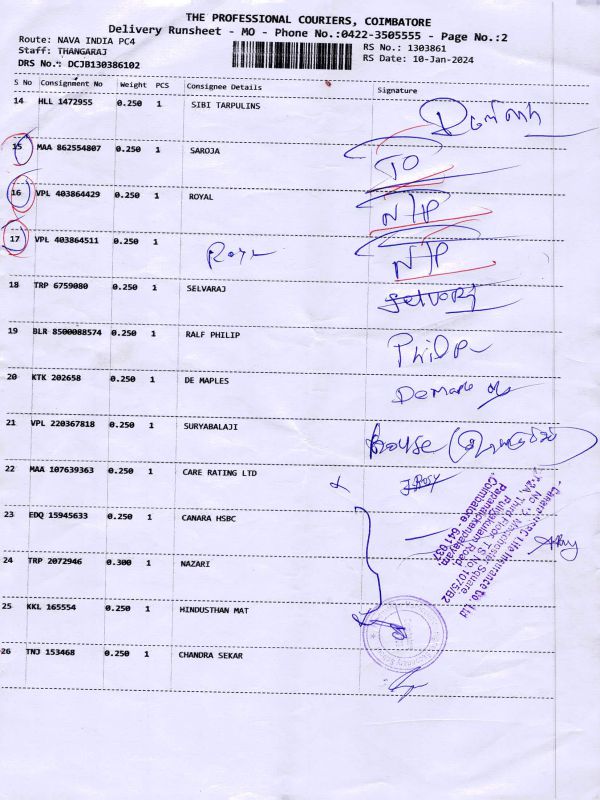 THE PROFESSIONAL COURIERS, COIMBATORE
Delivery Runsheet - MO - Phone No.:0422-3505555 - Page No.:2
Route: NAVA INDIA PC4 RS No.: 1303861
Staff: THANGARAJ RS Date: 10-Jan-2024
DRS No.: DCJB130386102
S No Consignment No Weight PCS Consignee Details Signature
14 HLL 1472955 0.250 1 SIBI TARPULINS
15 MAA 862554807 0.250 1 SAROJA TO
16 VPL 403864429 0.250 1 ROYAL N/P
17 VPL 403864511 0.250 1 N/P
18 TRP 6759080 0.250 1 SELVARAJ Selvaraj
19 BLR 8500088574 0.250 1 RALF PHILIP Philip
20 KTK 202658 0.250 1 DE MAPLES Demaple
21 VPL 220367818 0.250 1 SURYABALAJI House
22 MAA 107639363 0.250 1 CARE RATING LTD
23 EDQ 15945633 0.250 1 CANARA HSBC
24 TRP 2072946 0.300 1 NAZARI
25 KKL 165554 0.250 1 HINDUSTHAN MAT
26 TNJ 153468 0.250 1 CHANDRA SEKAR
Canara HSBC Life Insurance Co Ltd
Third Floor, T S No 1075/B2
Pulingkulam Road
Papanaickenpalayam
Coimbatore - 641 037.